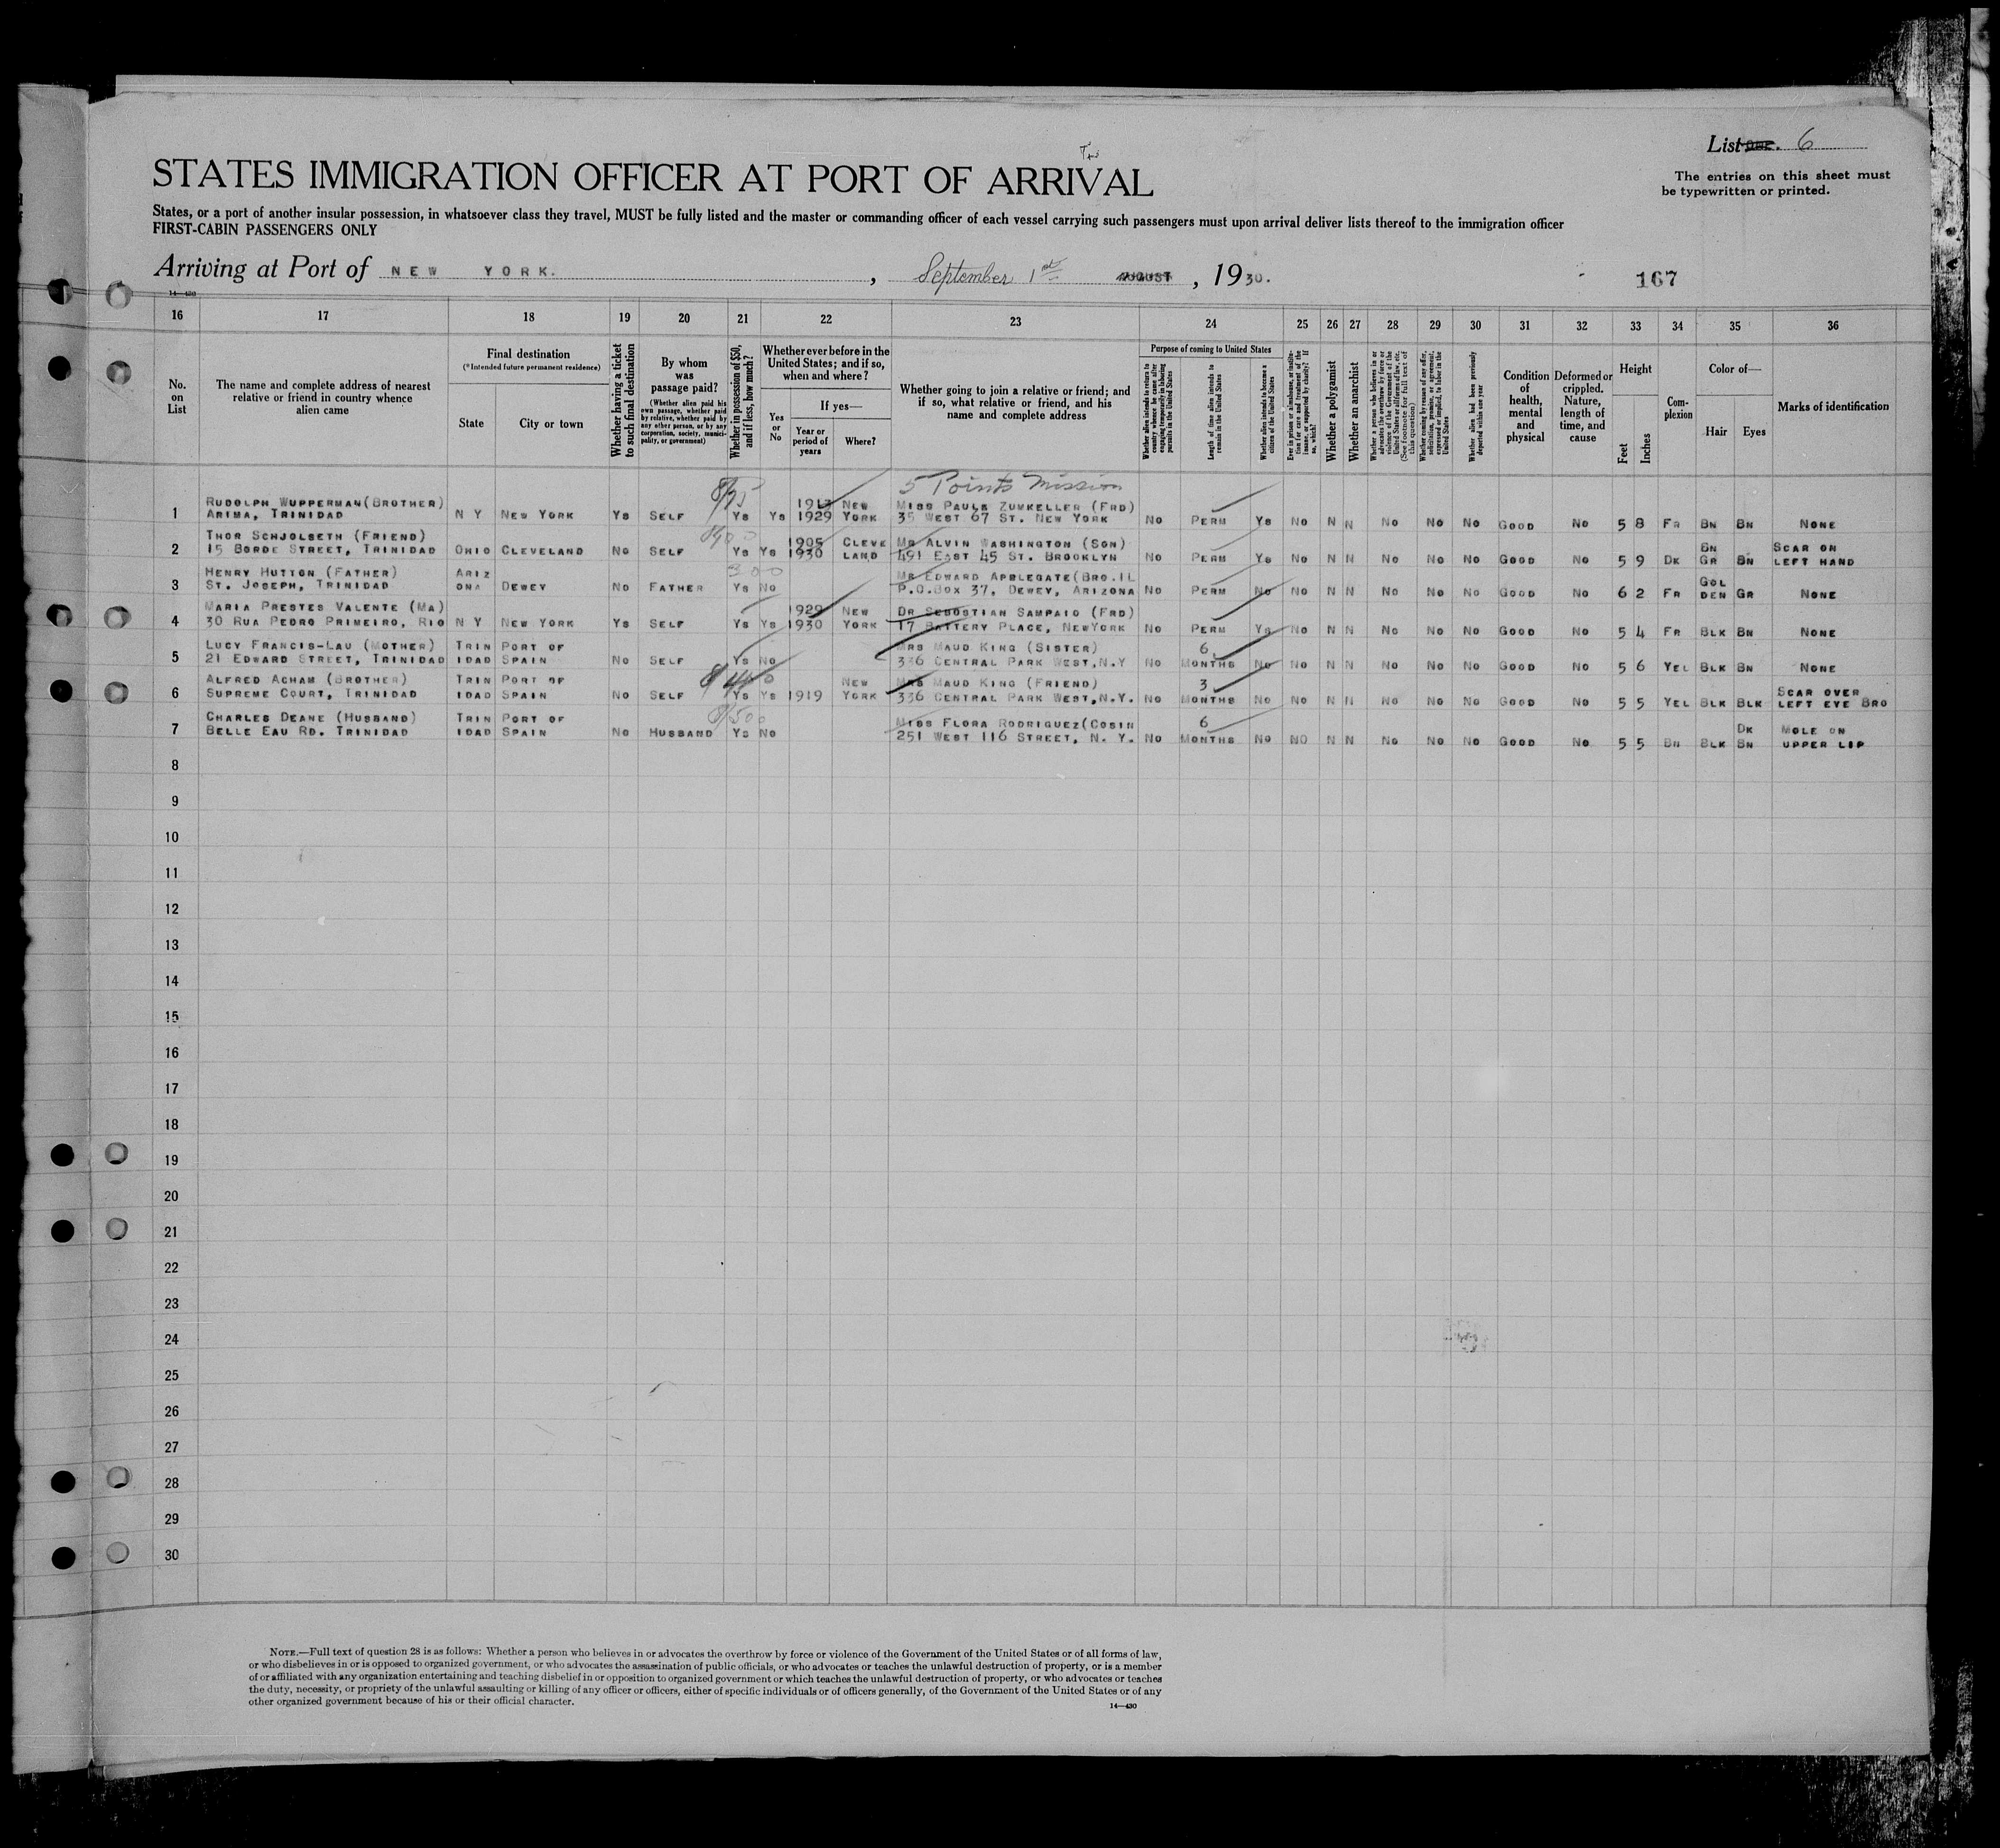 List 6
The entries on this sheet must
be typewritten or printed.
STATES IMMIGRATION OFFICER AT PORT OF ARRIVAL
States, or a port of another insular possession, in whatsoever class they travel, MUST be fully listed and the master or commanding officer of each vessel carrying such passengers must upon arrival deliver lists thereof to the immigration officer
FIRST-CABIN PASSENGERS ONLY
Arriving at Port of NEW YORK. , September 1st AUGUST , 1930.
167
14—430
16 17 18 19 20 21 22 23 24 25 26 27 28 29 30 31 32 33 34 35 36
No. on List
The name and complete address of nearest relative or friend in country whence alien came
Final destination
(*Intended future permanent residence)
State
City or town
Whether having a ticket to such final destination
By whom was passage paid?
(Whether alien paid his own passage, whether paid by relative, whether paid by any other person, or by any corporation, society, municipality, or government)
Whether in possession of $50, and if less, how much?
Whether ever before in the United States; and if so, when and where?
Yes or No
If yes—
Year or period of years
Where?
Whether going to join a relative or friend; and if so, what relative or friend, and his name and complete address
Purpose of coming to United States
Whether alien intends to return to country whence he came after engaging temporarily in laboring pursuits in the United States
Length of time alien intends to remain in the United States
Whether alien intends to become a citizen of the United States
Ever in prison or almshouse, or institution for care and treatment of the insane, or supported by charity? If so, which?
Whether a polygamist
Whether an anarchist
Whether a person who believes in or advocates the overthrow by force or violence of the Government of the United States or all forms of law, etc. (See footnote for full text of this question)
Whether coming by reason of any offer, solicitation, promise, or agreement, expressed or implied, to labor in the United States
Whether alien had been previously deported within one year
Condition of health, mental and physical
Deformed or crippled. Nature, length of time, and cause
Height
Feet
Inches
Complexion
Color of—
Hair
Eyes
Marks of identification
5 Points Mission
1 RUDOLPH WUPPERMAN(BROTHER) ARIMA, TRINIDAD N Y NEW YORK YS SELF YS YS 1913 1929 NEW YORK MISS PAULA ZUMKELLER (FRD) 35 WEST 67 ST. NEW YORK NO PERM YS NO N N NO NO NO GOOD NO 5 8 FR BN BN NONE
2 THOR SCHJOLSETH (FRIEND) 15 BORDE STREET, TRINIDAD OHIO CLEVELAND NO SELF YS YS 1905 1930 CLEVE LAND MR ALVIN WASHINGTON (SON) 491 EAST 45 ST. BROOKLYN NO PERM YS NO N N NO NO NO GOOD NO 5 9 DK BN GR BN SCAR ON LEFT HAND
300
3 HENRY HUTTON (FATHER) ST. JOSEPH, TRINIDAD ARIZ ONA DEWEY NO FATHER YS NO MR EDWARD APPLEGATE(BRO.IL P.O.BOX 37, DEWEY, ARIZONA NO PERM NO NO N N NO NO NO GOOD NO 6 2 FR GOL DEN GR NONE
4 MARIA PRESTES VALENTE (MA) 30 RUA PEDRO PRIMEIRO, RIO N Y NEW YORK YS SELF YS YS 1929 1930 NEW YORK DR SEBOSTIAN SAMPAIO (FRD) 17 BATTERY PLACE, NEWYORK NO PERM YS NO N N NO NO NO GOOD NO 5 4 FR BLK BN NONE
5 LUCY FRANCIS-LAU (MOTHER) 21 EDWARD STREET, TRINIDAD TRIN IDAD PORT OF SPAIN NO SELF YS NO MRS MAUD KING (SISTER) 336 CENTRAL PARK WEST,N.Y NO 6 MONTHS NO NO N N NO NO NO GOOD NO 5 6 YEL BLK BN NONE
6 ALFRED ACHAM (BROTHER) SUPREME COURT, TRINIDAD TRIN IDAD PORT OF SPAIN NO SELF YS YS 1919 NEW YORK MRS MAUD KING (FRIEND) 336 CENTRAL PARK WEST,N.Y. NO 3 MONTHS NO NO N N NO NO NO GOOD NO 5 5 YEL BLK BLK SCAR OVER LEFT EYE BRO
7 CHARLES DEANE (HUSBAND) BELLE EAU RD. TRINIDAD TRIN IDAD PORT OF SPAIN NO HUSBAND YS NO MISS FLORA RODRIGUEZ(COSIN 251 WEST 116 STREET, N. Y. NO 6 MONTHS NO NO N N NO NO NO GOOD NO 5 5 BN BLK DK BN MOLE ON UPPER LIP
8
9
10
11
12
13
14
15
16
17
18
19
20
21
22
23
24
25
26
27
28
29
30
NOTE.—Full text of question 28 is as follows: Whether a person who believes in or advocates the overthrow by force or violence of the Government of the United States or of all forms of law,
or who disbelieves in or is opposed to organized government, or who advocates the assassination of public officials, or who advocates or teaches the unlawful destruction of property, or is a member
of or affiliated with any organization entertaining and teaching disbelief in or opposition to organized government or which teaches the unlawful destruction of property, or who advocates or teaches
the duty, necessity, or propriety of the unlawful assaulting or killing of any officer or officers, either of specific individuals or of officers generally, of the Government of the United States or of any
other organized government because of his or their official character.
14—430